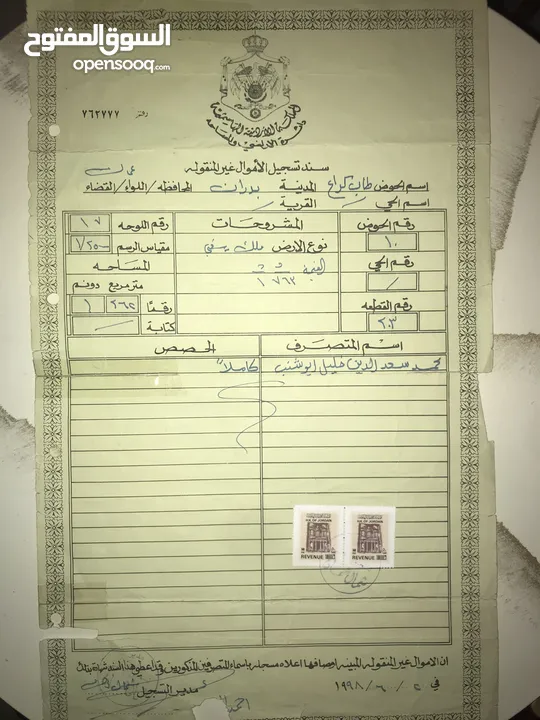 السوق المفتوح
opensooq.com
المملكة الأردنية الهاشمية
دائرة الأراضي والمساحة
رقم ٧٦٢٧٧٧
سند تسجيل الأموال غير المنقوله
اسم الحوض طاب كراع المدينة بدران المحافظه/اللواء/القضاء
اسم الحي القرية
رقم الحوض المشروحات رقم اللوحه ١٧
١٠ نوع الارض ملك مقياس الرسم
رقم الحي المساحه
/ متر مربع دونم
رقم القطعه رقمًا ١
٢٠٣ كتابة
اسم المتصرف الحصص
محمد سعد الدين خليل ابوشنب كاملاً
H.K. OF JORDAN
REVENUE
H.K. OF JORDAN
REVENUE
ان الاموال غير المنقوله المبينه اوصافها اعلاه مسجله باسماء المتصرفين المذكورين وقد اعطي هذا السند شهادة بذلك
في ٢ / ٦ / ١٩٩٨ مدير التسجيل